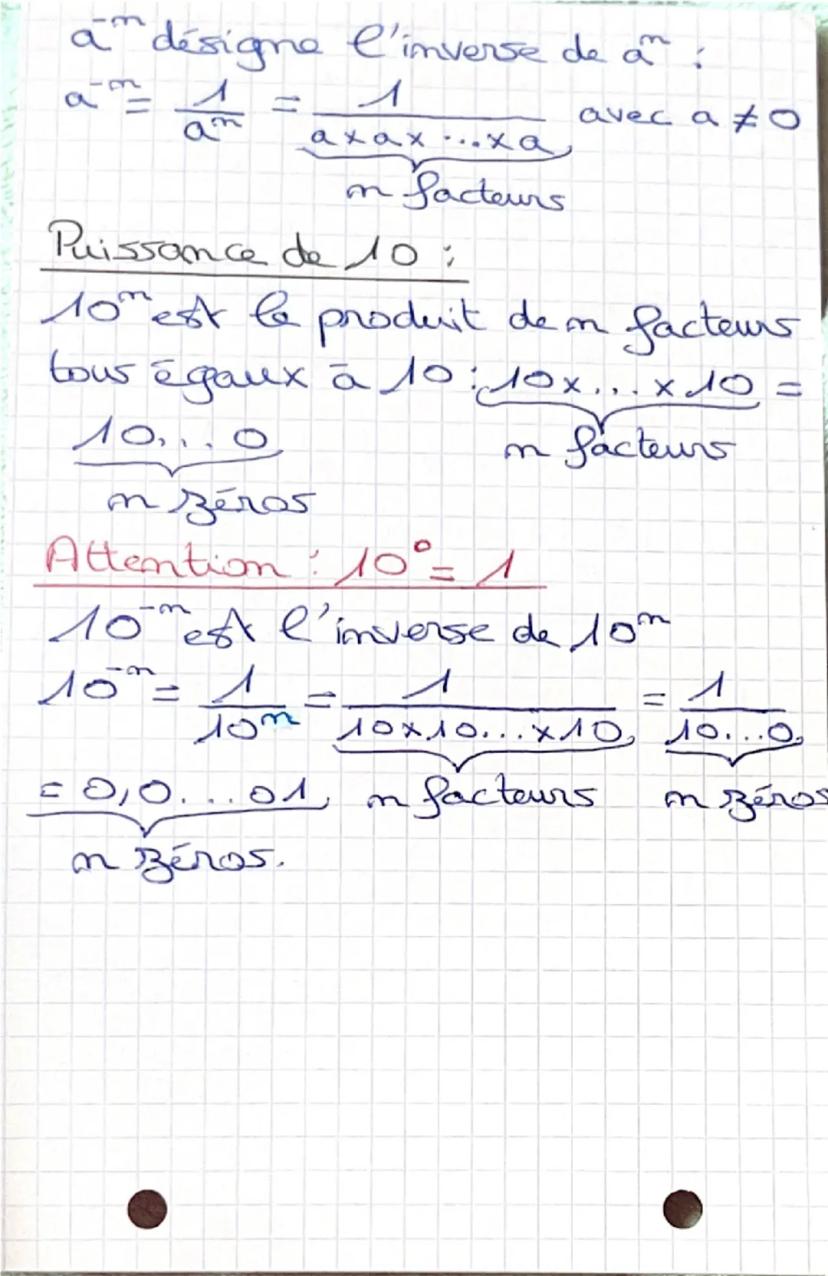 a⁻ⁿ désigne l'inverse de aⁿ :
a⁻ⁿ = 1/aⁿ = 1/(a×a×...×a) avec a ≠ 0
n facteurs
Puissance de 10 :
10ⁿ est le produit de n facteurs
tous égaux à 10 : 10×...×10 =
10...0 n facteurs
n zéros
Attention : 10⁰ = 1
10⁻ⁿ est l'inverse de 10ⁿ
10⁻ⁿ = 1/10ⁿ = 1/(10×10...×10) = 1/(10...0)
= 0,0...01 n facteurs n zéros
n zéros.